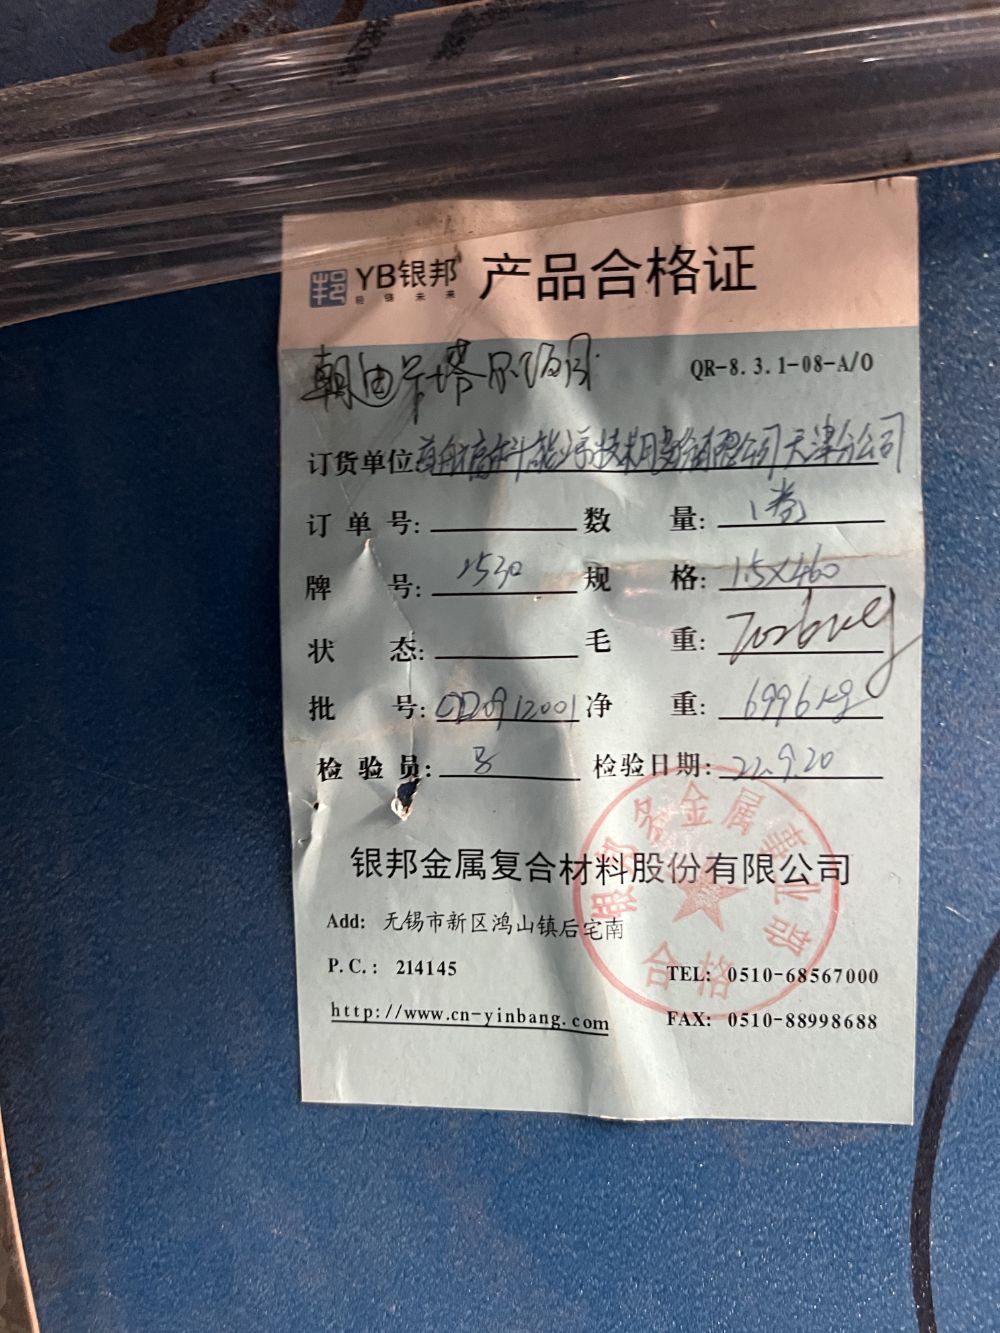 邦 YB银邦 产品合格证
轻铸未来
QR-8.3.1-08-A/O
订货单位 首航高科能源技术股份有限公司天津分公司
订单号: 数量: 1卷
牌号: 1530 规格: 1.5X460
状态: 毛重: 7026kg
批号: 0D20912001 净重: 6996kg
检验员: 检验日期: 22.9.20
银邦金属复合材料股份有限公司
Add: 无锡市新区鸿山镇后宅南
P.C.: 214145 TEL: 0510-68567000
http://www.cn-yinbang.com FAX: 0510-88998688
合格